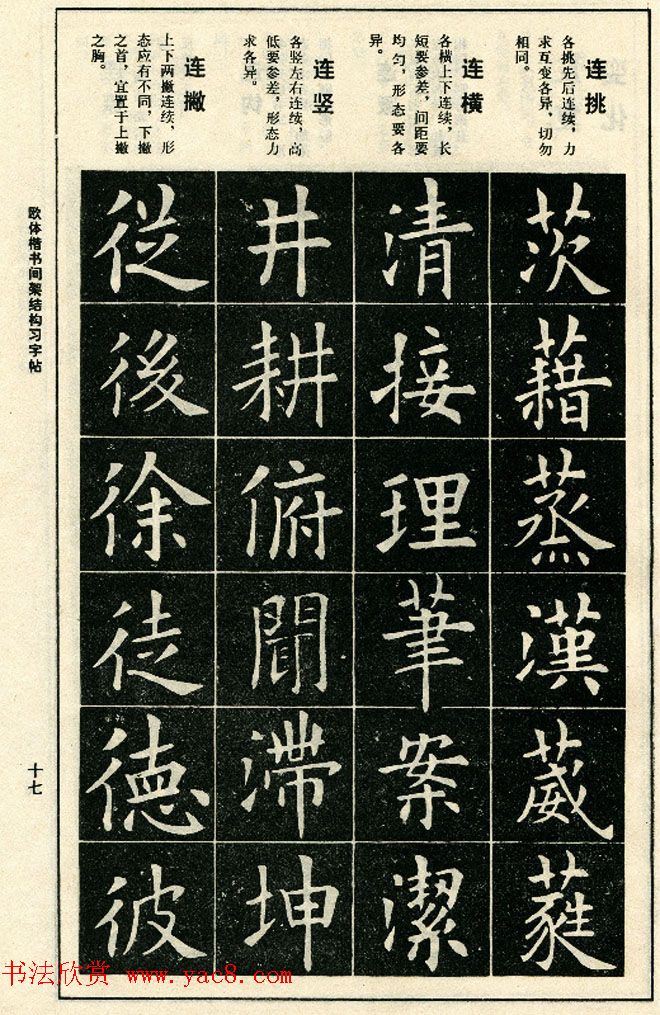 连挑
各挑先后连续，力
求互变各异，切勿
相同。
茨藉蒸漢葳蕤
连横
各横上下连续，长
短要参差，间距要
均匀，形态要各
异。
清接理筆案潔
连竖
各竖左右连续，高
低要参差，形态力
求各异。
井耕俯聞滯坤
连撇
上下两撇连续，形
态应有不同，下撇
之首，宜置于上撇
之胸。
従後徐徒徳彼
欧体楷书间架结构习字帖
十七
书法欣赏 www.yac8.com